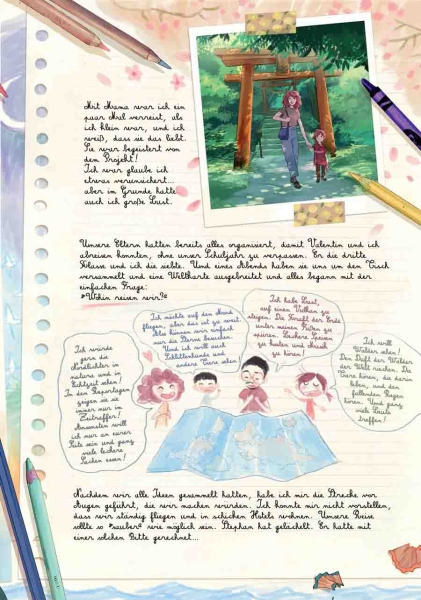 Mit Mama war ich ein
paar Mal verreist, als
ich klein war, und ich
weiß, dass sie das liebt.
Sie war begeistert von
dem Projekt!
Ich war glaube ich
etwas verunsichert...
aber im Grunde hatte
auch ich große Lust.
Unsere Eltern hatten bereits alles organisiert, damit Valentin und ich
abreisen konnten, ohne unser Schuljahr zu verpassen. Er die dritte
Klasse und ich die siebte. Und eines Abends haben sie uns um den Tisch
versammelt und eine Weltkarte ausgebreitet und alles begann mit der
einfachen Frage:
"Wohin reisen wir?"
Ich würde
gern die
Nordlichter in
natura und in
Echtzeit sehen!
In den Reportagen
zeigen sie sie
immer nur im
Zeitraffer!
Ansonsten will
ich nur an eurer
Seite sein und ganz
viele leckere
Sachen essen!
Ich möchte auf den Mond
fliegen, aber das ist zu weit.
Also können wir einfach
nur die Sterne besuchen.
Und ich will auch
Schlittenhunde und
andere Tiere sehen!
Ich habe Lust,
auf einen Vulkan zu
steigen. Die Kraft der Erde
unter meinen Füßen zu
spüren. Leckere Speisen
zu kosten und Musik
zu hören!
Ich will
Wälder sehen!
Den Duft der Wälder
der Welt riechen. Die
Tiere hören, die darin
leben, und den
fallenden Regen
hören. Und ganz
viele Leute
treffen!
Nachdem wir alle Ideen gesammelt hatten, habe ich mir die Strecke vor
Augen geführt, die wir machen würden. Ich konnte mir nicht vorstellen,
dass wir ständig fliegen und in schicken Hotels wohnen. Unsere Reise
sollte so "sauber" wie möglich sein. Stephan hat gelächelt. Er hatte mit
einer solchen Bitte gerechnet...